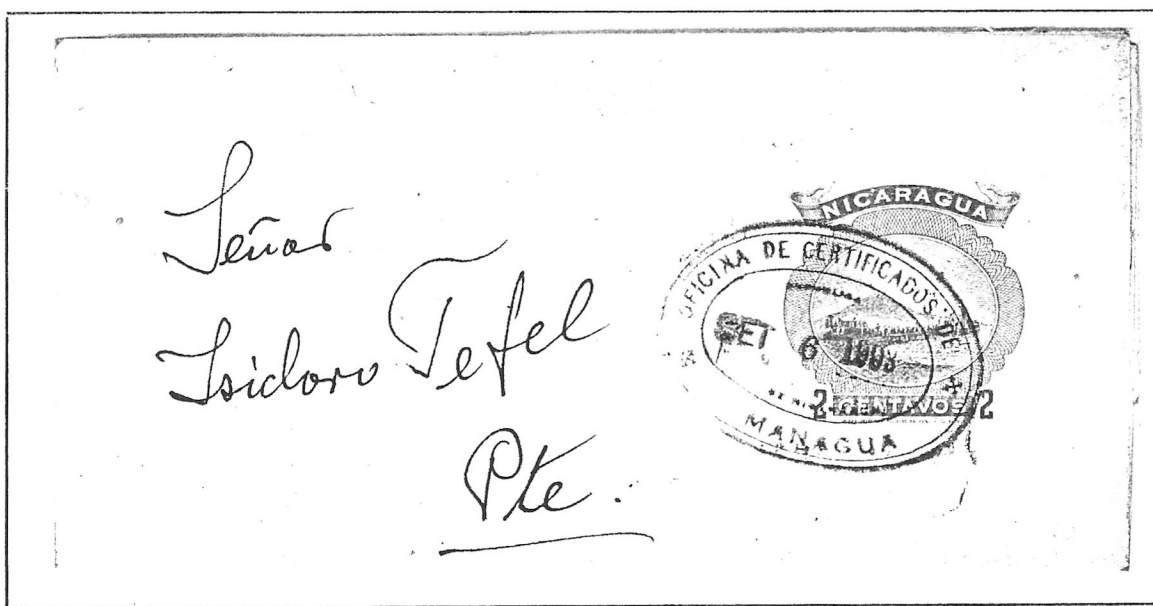 Señor
Isidoro Tefel
Pte.
NICARAGUA
OFICINA DE CERTIFICADOS DE
SET 6 1903
MANAGUA
2 CENTAVOS 2